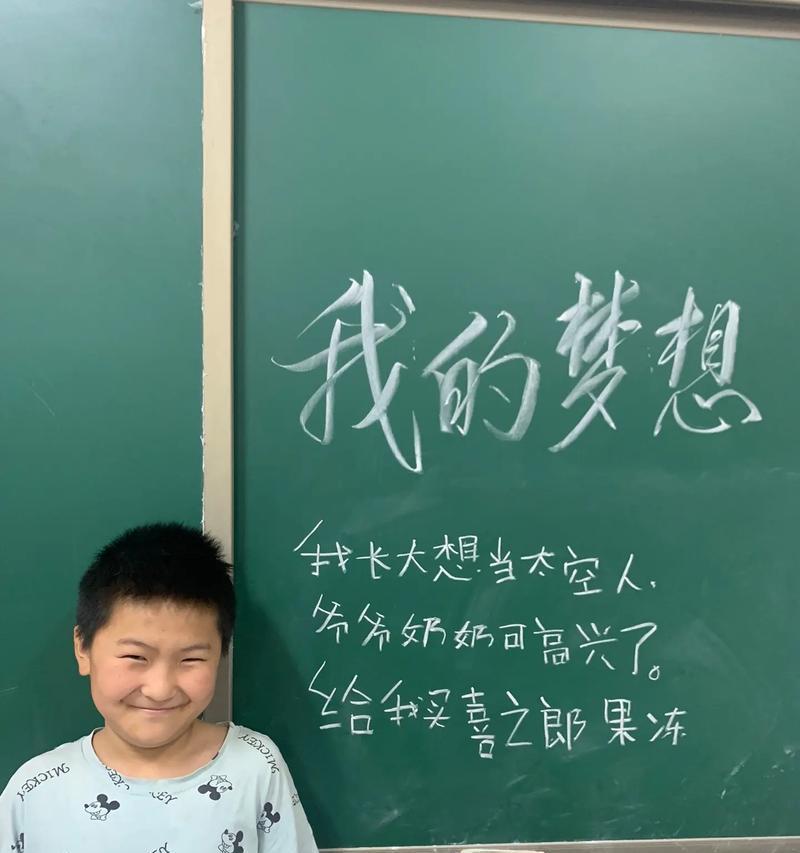 我的梦想
我长大想当太空人,
爷爷奶奶可高兴了。
给我买喜之郎果冻
MICKEY
MICKEY